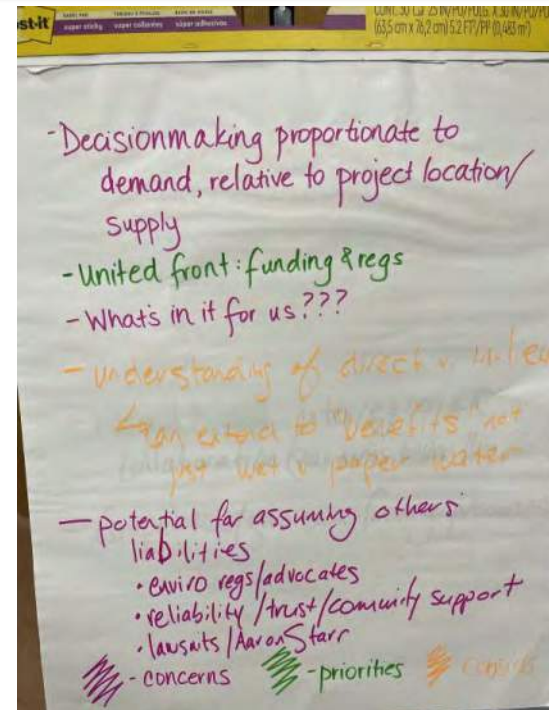 st-it
super sticky
super adhesivos
(63,5 cm x 76,2 cm) 5.2 FT²/PP (0,483 m²)
- Decisionmaking proportionate to
demand, relative to project location/
supply
- United front: funding & regs
- Whats in it for us???
- understanding of direct v.
can extend to "benefits" not
just wet v paper water
- potential for assuming others'
liabilities
• enviro regs/advocates
• reliability/trust/comunity support
• lawsuits/Aaron Starr
- concerns - priorities